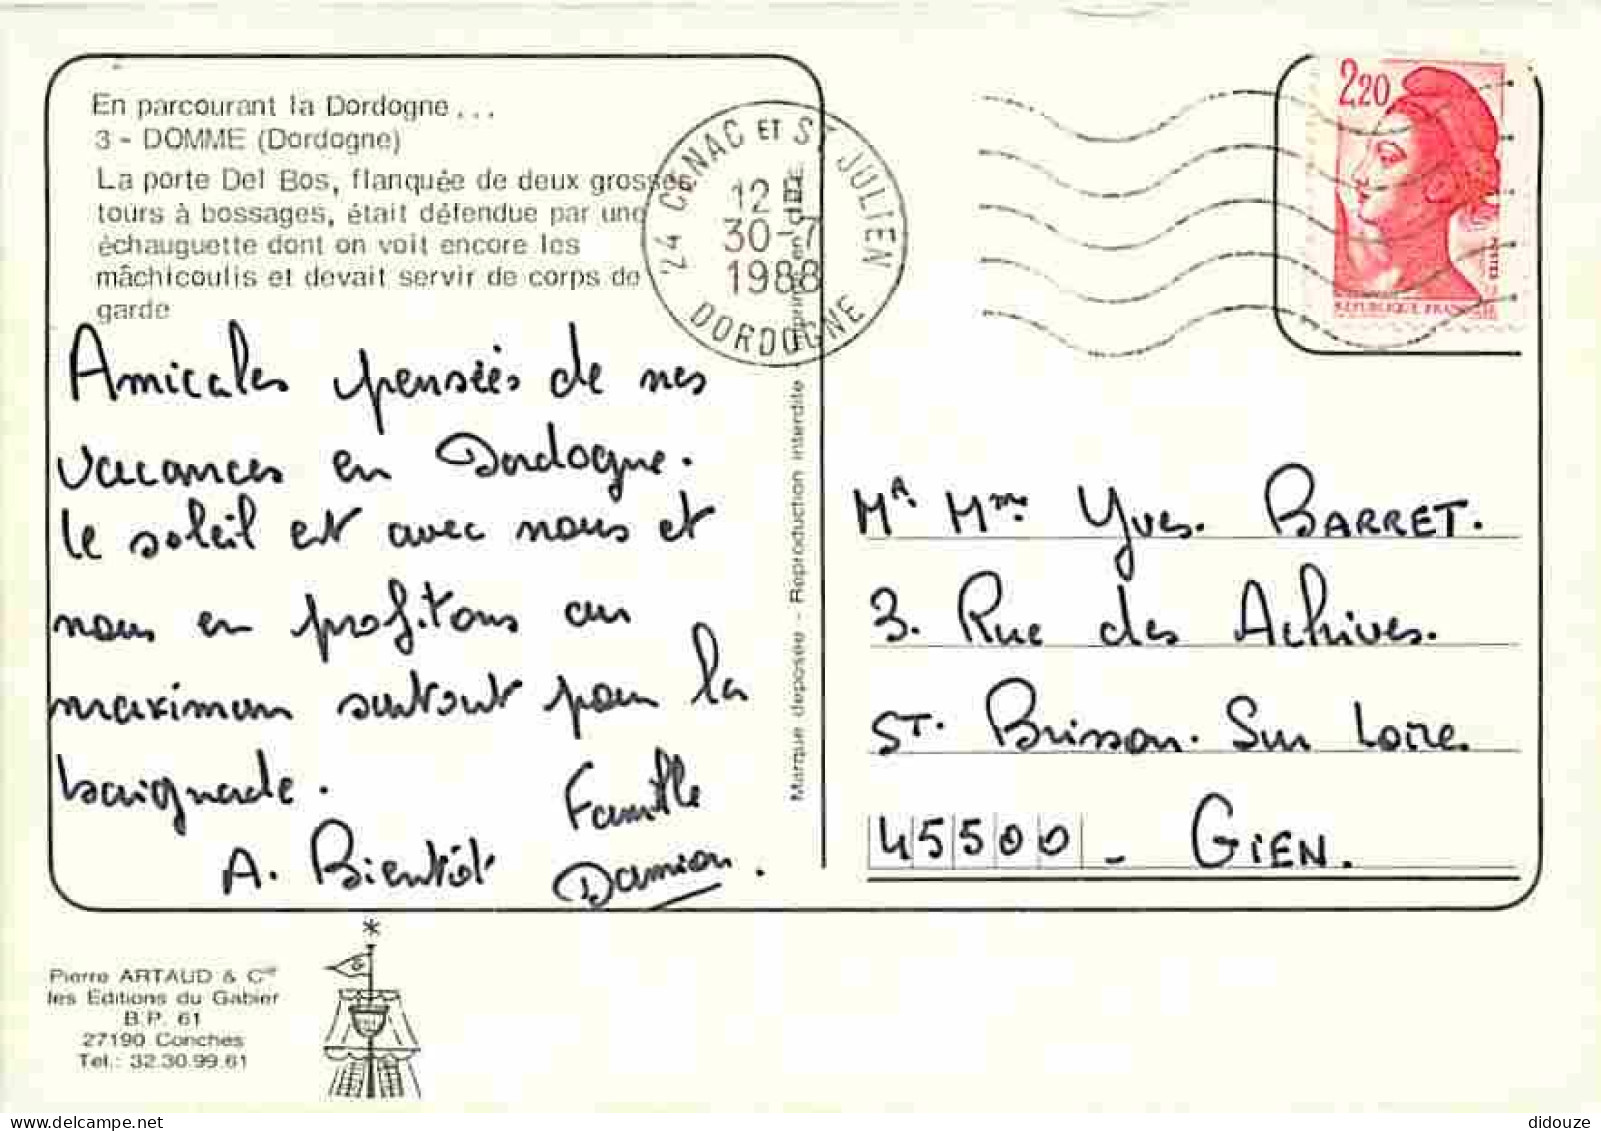 En parcourant la Dordogne...
3 - DOMME (Dordogne)
La porte Del Bos, flanquée de deux grosses
tours à bossages, était défendue par une
échauguette dont on voit encore les
mâchicoulis et devait servir de corps de
garde
24 CENAC ET ST JULIEN
12H
30-7
1988
DORDOGNE
2,20
POSTES
REPUBLIQUE FRANCAISE
Amicales pensées de nos
vacances en Dordogne.
Le soleil est avec nous et
nous en profitons au
maximum surtout pour la
baignade.
A. Bientôt
Famille
Damion.
Marque déposée - Reproduction interdite
Mr. Mme. Yves. BARRET.
3. Rue des Achives.
ST. Brisson. Sur Loire
45500 - GIEN.
Pierre ARTAUD & Cie
les Editions du Gabier
B.P. 61
27190 Conches
Tel.: 32.30.99.61
didouze